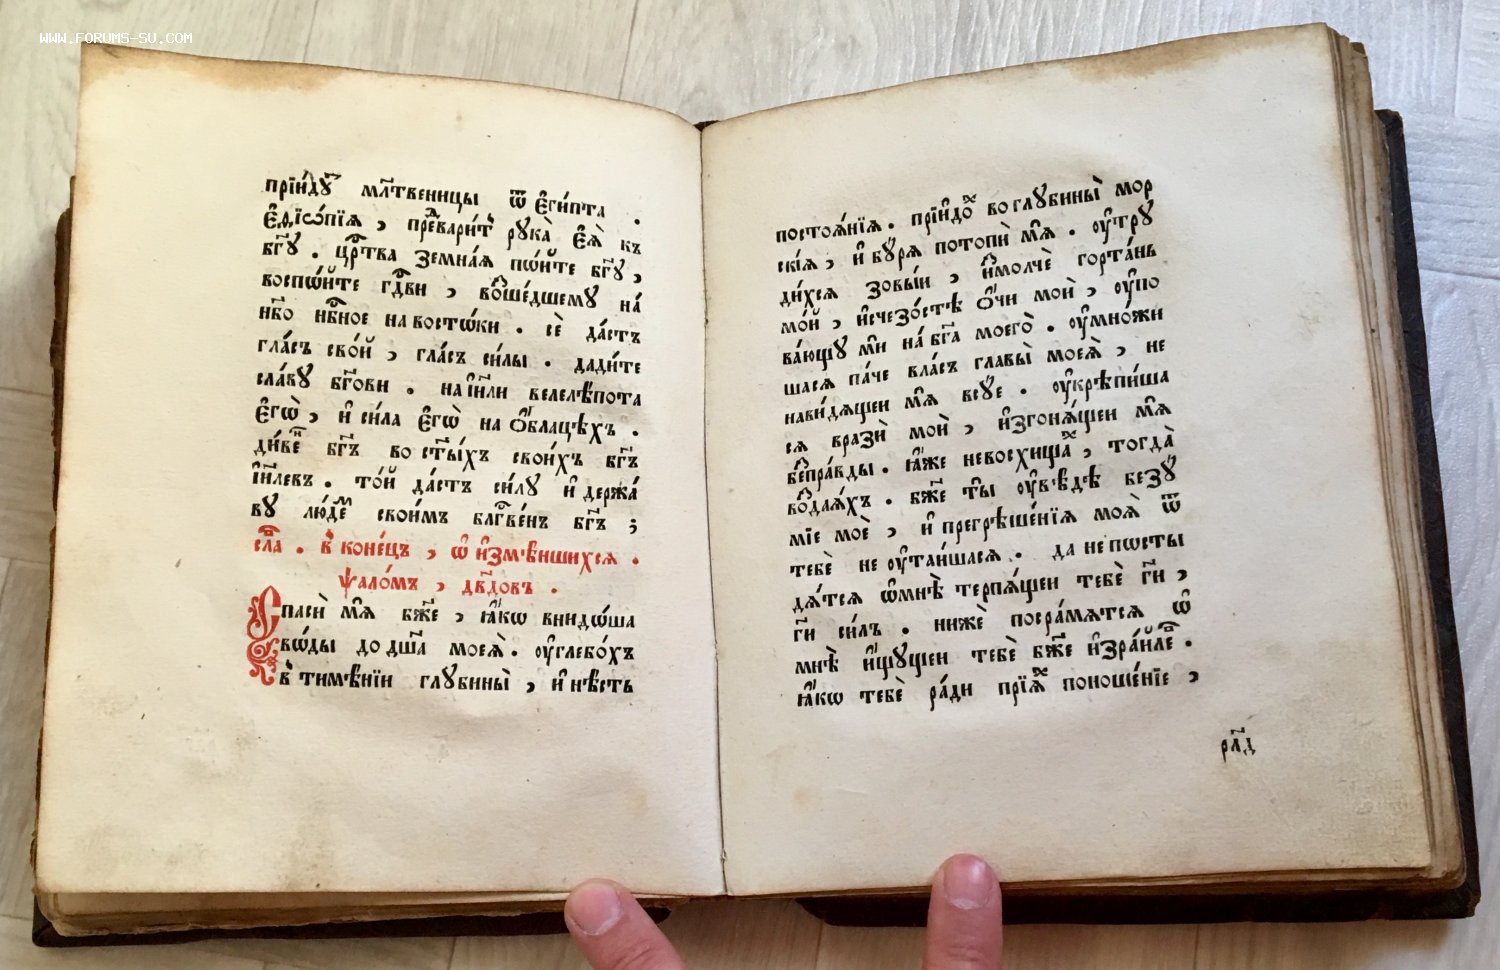 WWW.FORUMS-SU.COM
прїи́дꙋ́т҆ мл҃твеницы ѿ є҆гі́пта .
є҆ѳїѻ́пїѧ , пре́двари́т҆ рꙋка̀ є҆ѧ̀ къ
бг҃ꙋ . црⷭ҇тва земна́ѧ по́йте бг҃ꙋ ,
воспѡ́йте гдⷭ҇ви , воше́дшемꙋ на́
нб҃о нбⷭ҇ное на востѡ́ки . сѐ да́стъ
гла́съ сво́й , гла́съ си́лы . дади́те
сла́вꙋ бг҃ови . на і҆и҃ли велелѣ́пота
є҆гѡ̀ , и҆ си́ла є҆гѡ̀ на ѻ҆́блацѣхъ .
ди́венⷩ бг҃ъ во ст҃ы́хъ свои́хъ бг҃ъ
і҆и҃левъ . то́й да́стъ си́лꙋ и҆ держа́
вꙋ лю́демⷨ свои́мъ блгⷭ҇ве́нъ бг҃ъ ;
сла́вⷡа . в҆ коне́цъ , ѡ҆ и҆змѣ́ншихсѧ .
ѱало́мъ , дв҃довъ .
Спасѝ мѧ̀ бж҃е , ꙗ҆́кѡ внидѡ́ша
вѡ́ды до дш҃а моеѧ̀ . ѹ҆глебо́хъ
в҆ тимѣ́нїи глꙋбины̀ , и҆ нѣ́сть
постоѧ́нїѧ . прїидо́хⷯ во глꙋбины̀ мор
скі́ѧ , и҆ бꙋ́рѧ потопѝ мѧ̀ . ѹ҆трꙋ
ди́хсѧ зовы́и , и҆змолчѐ горта́нь
мо́й , и҆счезо́стѣ ѻ҆́чи моѝ , ѹ҆по
ва́ющꙋ мѝ на́ бг҃а моегѡ̀ . ѹ҆мно́жи
шасѧ па́че вла́съ главы̀ моеѧ̀ , не
нави́дѧщеи мѧ̀ всꙋ́е . ѹ҆крѣпи́ша
сѧ вразѝ моѝ , и҆згонѧ́щеи мѧ̀
беспра́вды . ꙗ҆́же невосхища́хⷯ , тогда̀
воздаѧ́хъ . бж҃е ты̀ ѹ҆вѣ́дѣ безꙋ́
мїе моѐ , и҆ прегрѣше́нїѧ моѧ̀ ѿ
тебѐ не ѹ҆таи́шасѧ . да не пѡсты
дѧ́тсѧ ѡ҆ мнѣ̀ терпѧ́щеи тебѐ гдⷭ҇и ,
гдⷭ҇и си́лъ . нижѐ посра́мѧтсѧ ѡ҆
мнѣ̀ и҆́щꙋщеи тебѐ бж҃е и҆зра́илевⷡ .
ꙗ҆́кѡ тебѐ ра́ди прїѧ́хⷯ поноше́нїе ,
рл҃д